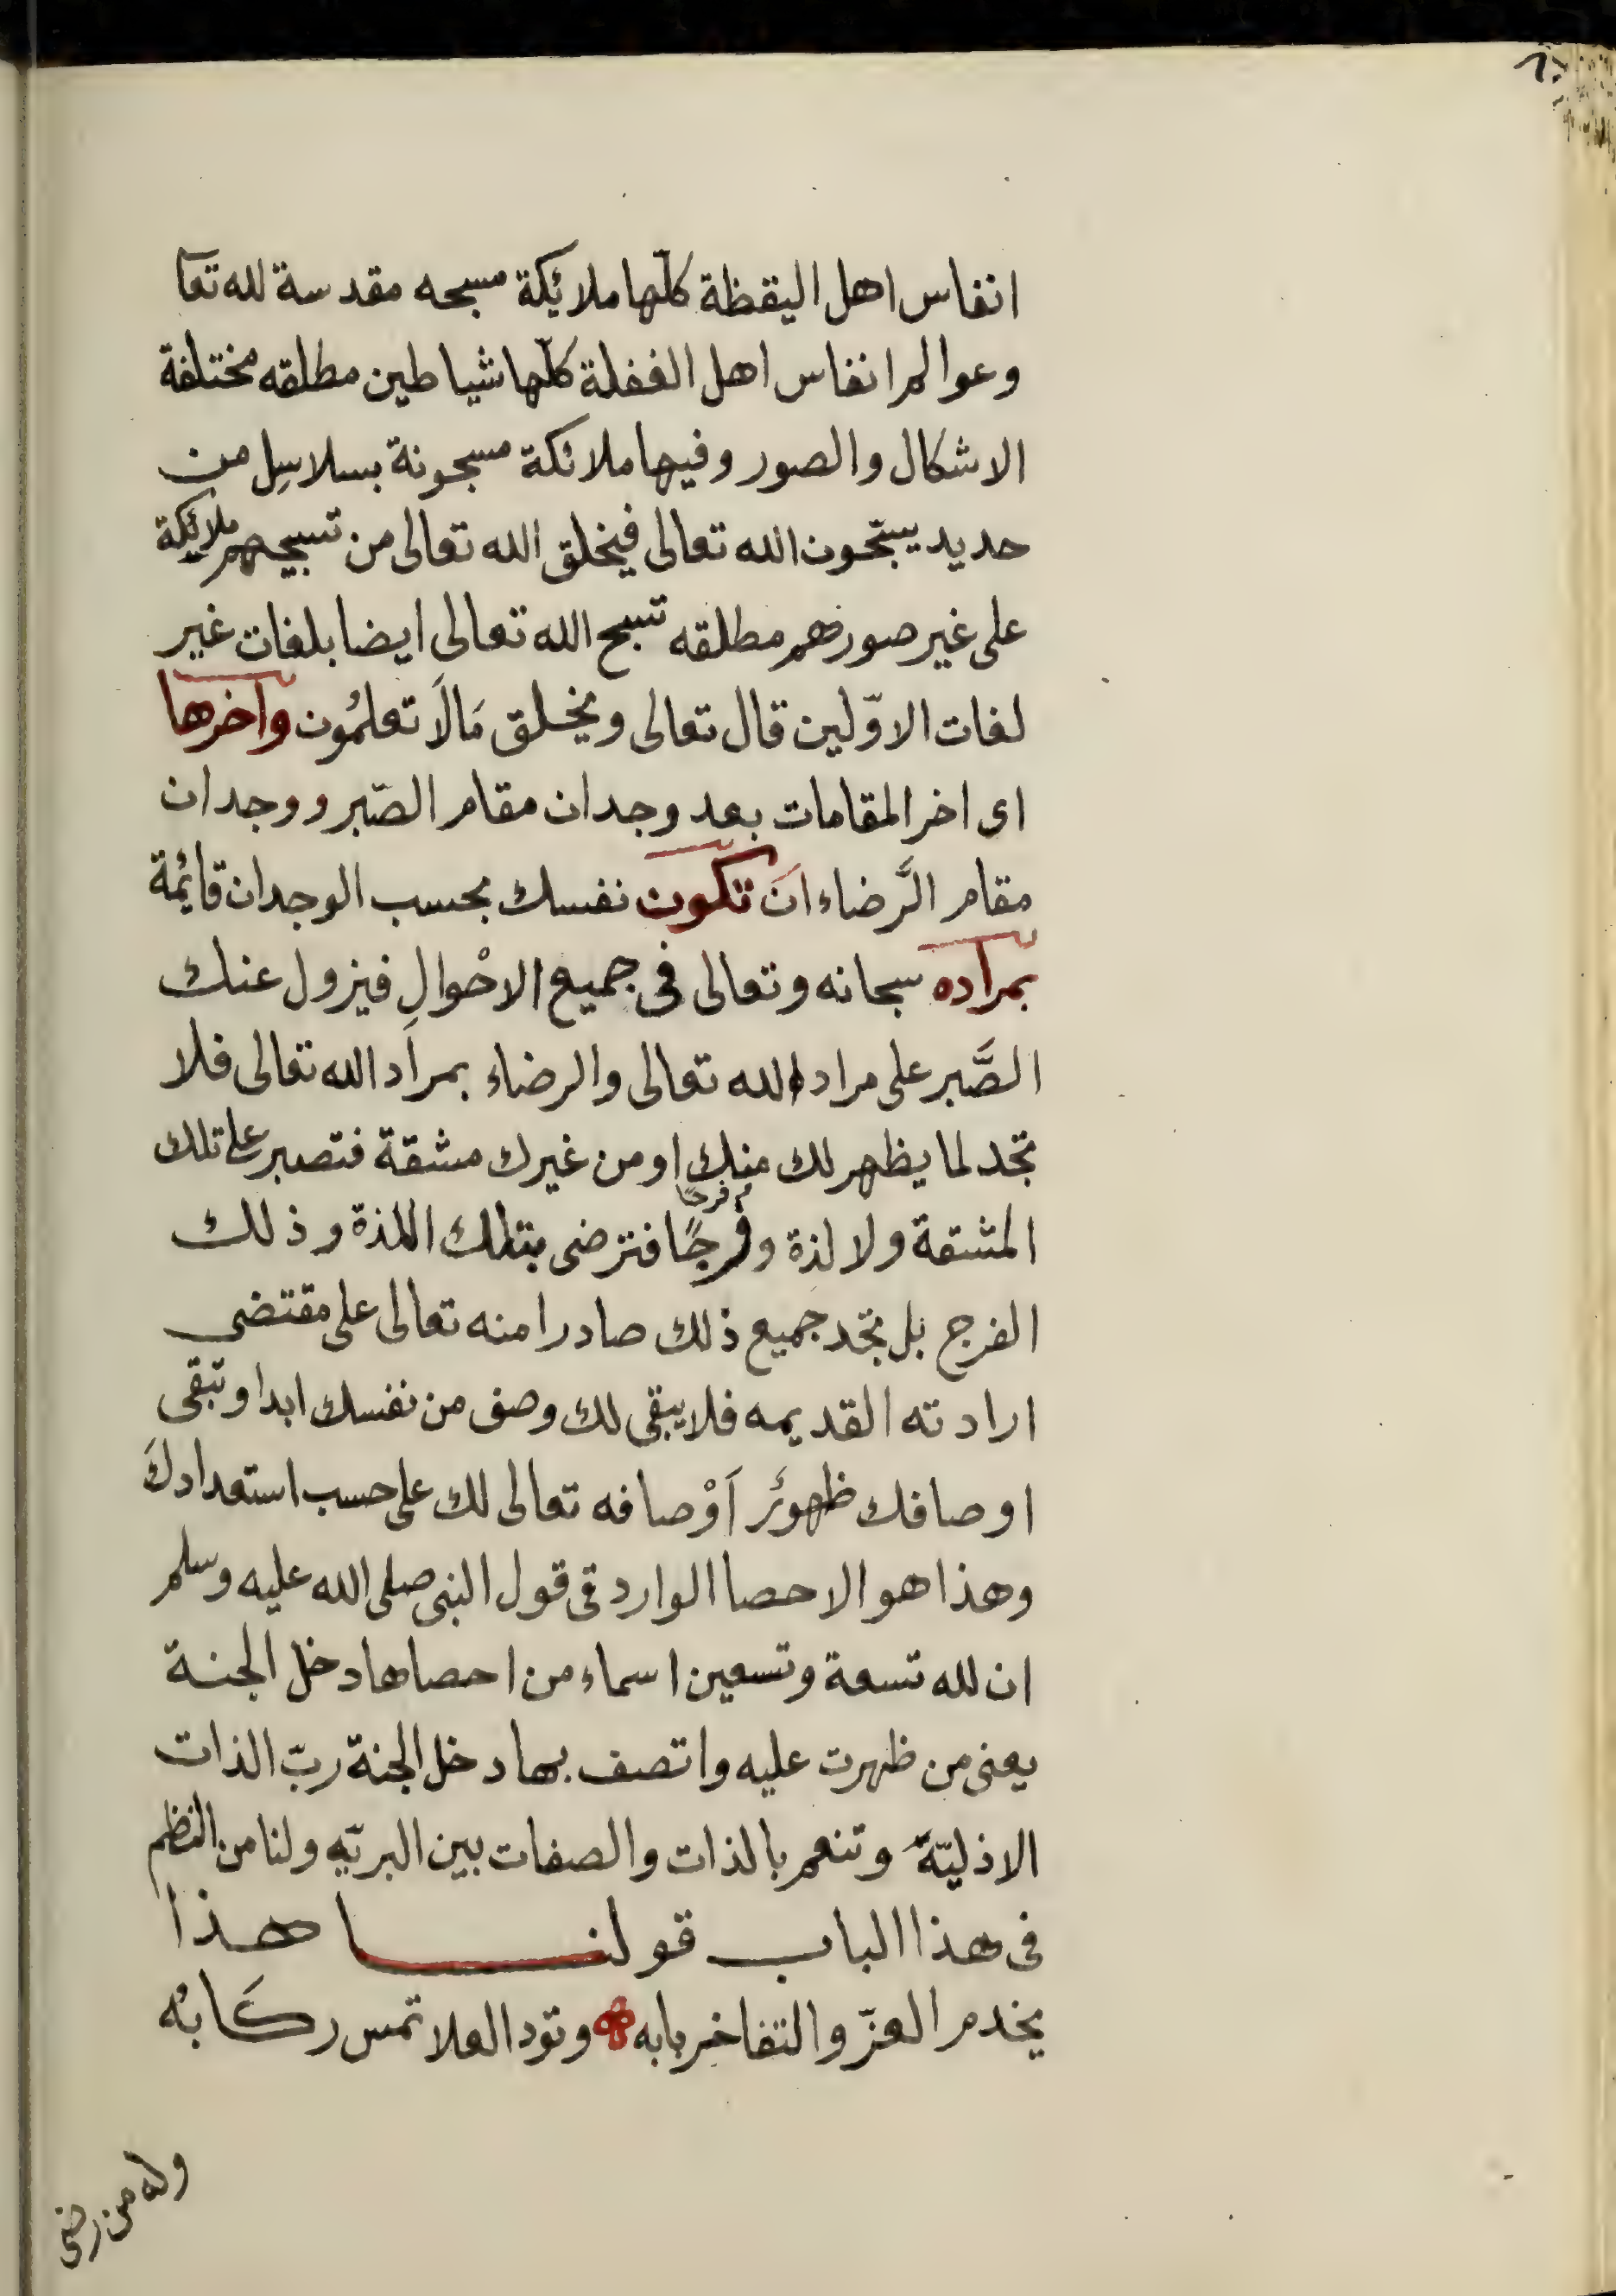 انفاس اهل اليقظة كلّها ملائكة مسبحه مقدسة لله تعا
وعوالم انفاس اهل الغفلة كلّها شياطين مطلقه مختلفة
الاشكال والصور وفيها ملائكة مسجونة بسلاسِل من
حديد يسبّحون الله تعالى فيخلق الله تعالى من تسبيحهم ملائكة
على غير صورهم مطلقه تسبح الله تعالى ايضا بلغات غير
لغات الاوّلين قال تعالى ويخلق مَالَا تعلمُون وآخرها
اى اخر المقامات بعد وجدان مقام الصّبر ووجدان
مقام الرَّضاء اَنَ تكون نفسك بحسب الوجدان قائمة
بمراده سبحانه وتعالى فى جميع الاحْوالِ فيزول عنك
الصَّبر على مراد الله تعالى والرضاء بمراَد الله تعالى فلا
تجد لما يظهر لك منك او من غيرك مشقة فتصبر على تلك
فرحًا
المشقة ولا لذة وفرجًا فترضى بتلك اللذة وذلك
الفرج بل تجد جميع ذلك صادرا منه تعالى على مقتضى
ارادته القديمه فلا يبقى لك وصف من نفسك ابدا وتبقى
اوصافك ظهوَر اَوْصافه تعالى لك على حسب استعدادكَ
وهذا هو الاحصا الوارد فى قول النبى صلى الله عليه وسلم
ان لله تسعة وتسعين اسماء من احصاها دخل الجنة
يعنى من ظهرت عليه واتصف بها دخل الجنة ربّ الذات
الاذليّة وتنعم بالذات والصفات بين البريّه ولنا من النظم
فى هذا الباب قولنا هذا
يخدم العزّ والتفاخر بابه وتود العلا تمس ركَابُه
وله من رضى